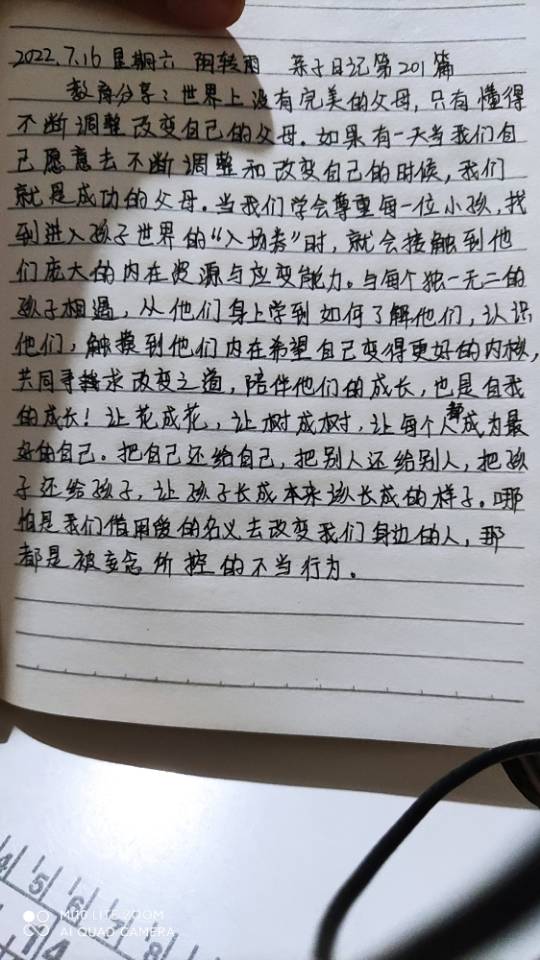 2022.7.16 星期六 阴转雨 亲子日记第201篇
教育分享：世界上没有完美的父母，只有懂得
不断调整改变自己的父母。如果有一天当我们自
己愿意去不断调整和改变自己的时候，我们
就是成功的父母。当我们学会尊重每一位小孩，找
到进入孩子世界的“入场券”时，就会接触到他
们庞大的内在资源与应变能力。与每个独一无二的
孩子相遇，从他们身上学到如何了解他们，认识
他们，触摸到他们内在希望自己变得更好的内核，
共同寻求改变之道，陪伴他们的成长，也是自我
的成长！让花成花，让树成树，让每个人都成为最
好的自己。把自己还给自己，把别人还给别人，把孩
子还给孩子，让孩子长成本来该长成的样子。哪
怕是我们借用爱的名义去改变我们身边的人，那
都是被妄念所控的不当行为。
4 5 6 7 8
14
MI 10 LITE ZOOM
AI QUAD CAMERA